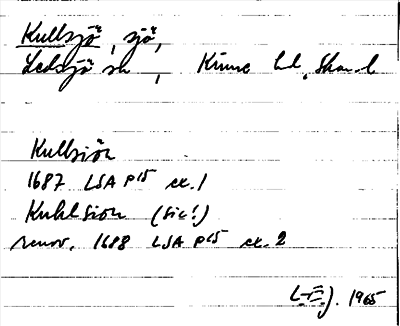 Kullsjö, sjö,
Ledsjö sn, Kinne hd, Skar. l.
Kullsiön
1687 LSA P15 ex. 1
Kuhlsion (sic!)
renov. 1688 LSA P15 ex. 2
L-E.J. 1965